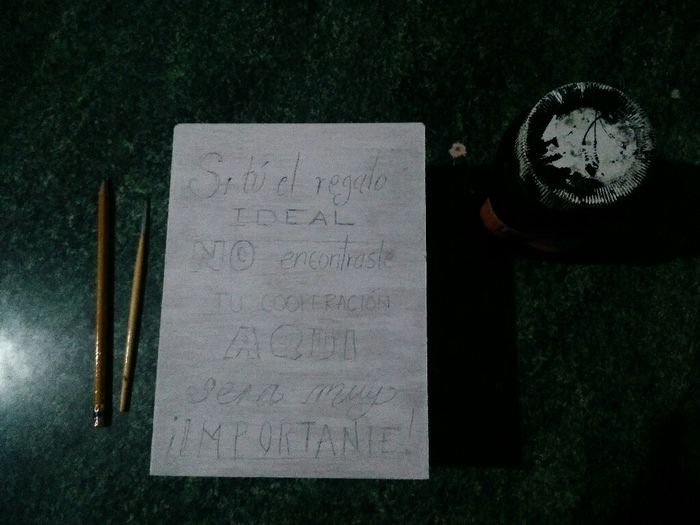 Si tú el regalo
IDEAL
NO encontraste
TU COOPERACIÓN
AQUI
sera muy
¡IMPORTANTE!